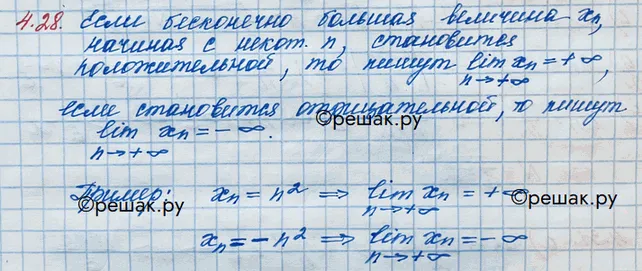 4.28. Если бесконечно большая величина xₙ,
начиная с некот. n, становится
положительной, то пишут lim xₙ = + ∞,
n→+∞
если становится отрицательной, то пишут
lim xₙ = - ∞.
n→+∞
©решак.ру
Пример: xₙ = n² ⇒ lim xₙ = + ∞
n→+∞
©решак.ру ©решак.ру
xₙ = - n² ⇒ lim xₙ = - ∞
n→+∞